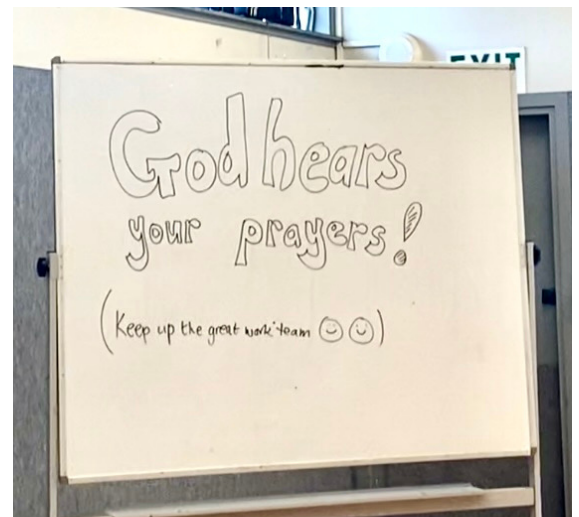 EXIT
God hears
your prayers!
(Keep up the great work team ☺ ☺)